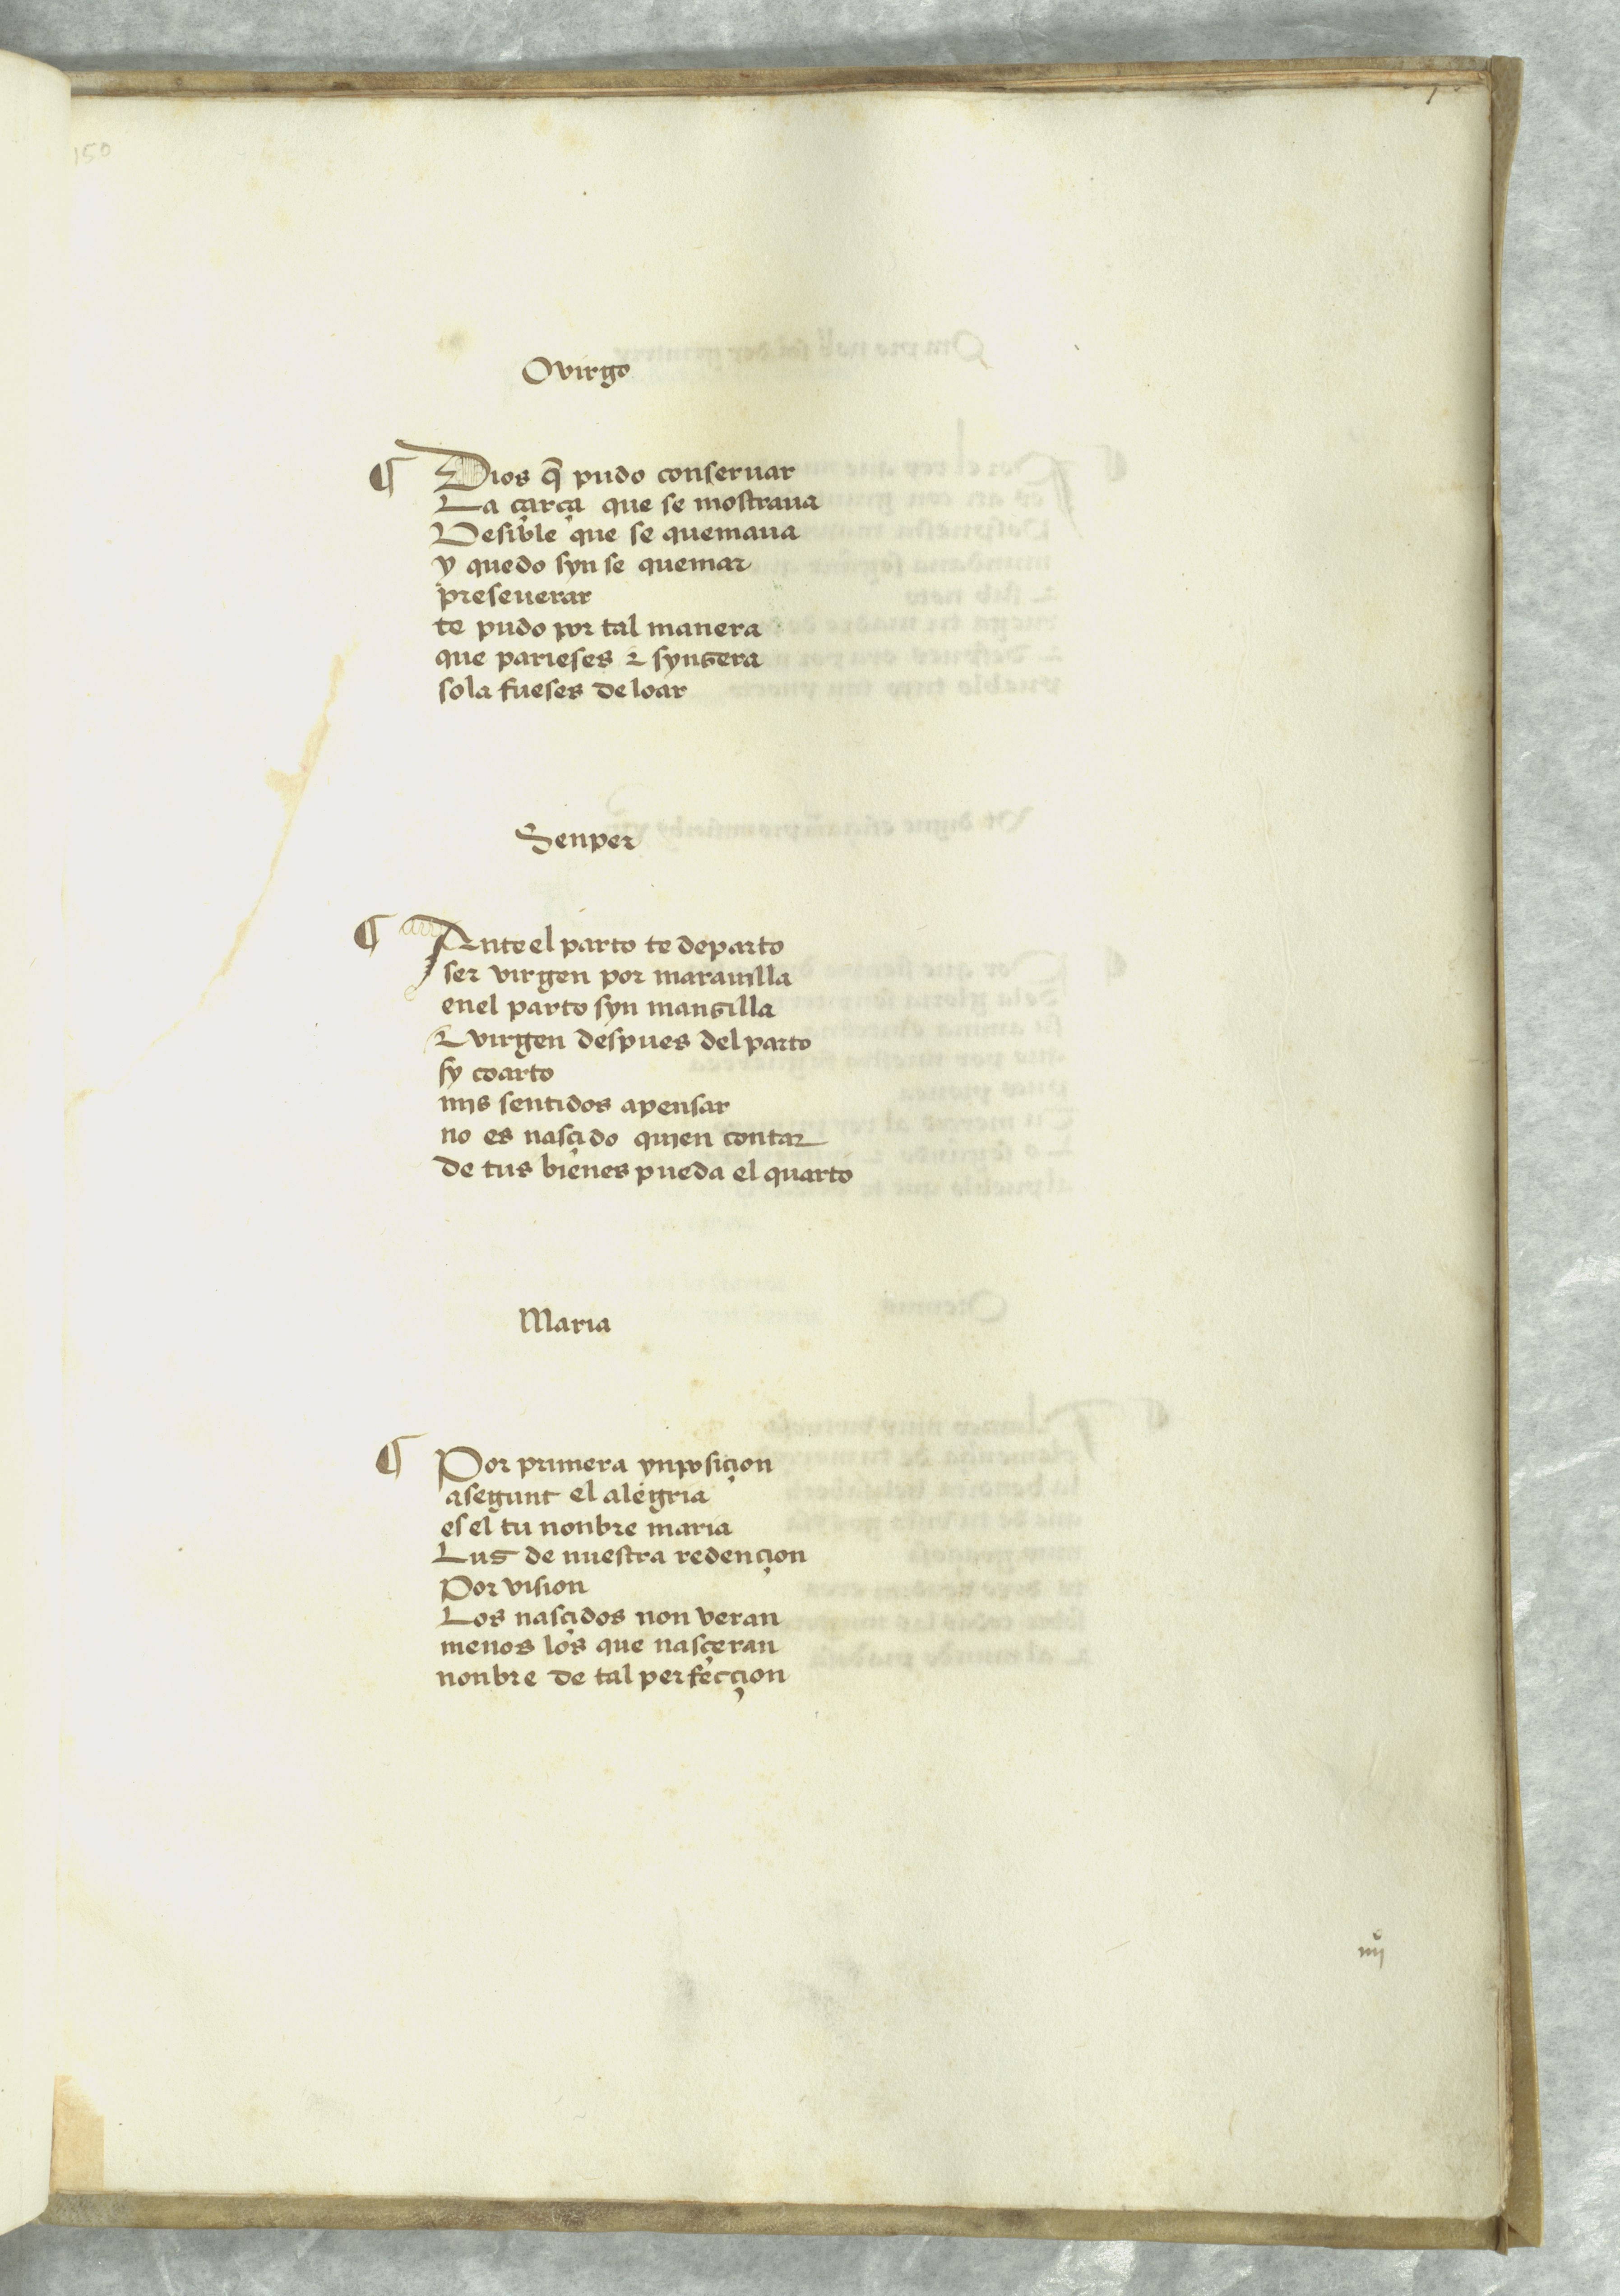 150
O virgo
¶ Dios q̃ pudo conseruar
La çarça que se mostraua
Vesible que se quemaua
y quedo syn se quemar
preseuerar
te pudo por tal manera
que parieses ⁊ synsera
sola fueses de loar
Senper
¶ Ante el parto te departo
ser virgen por marauilla
enel parto syn mansilla
⁊ virgen despues del parto
sy coarto
mis sentidos apensar
no es nasçido quien contar
de tus bienes pueda el quarto
Maria
¶ Por primera ynposiçion
asegunt el alegria
es el tu nonbre maria
Lus de nuestra redençion
Por vision
Los nasçidos non veran
menos los que nasçeran
nonbre de tal perfecçion
iiijº